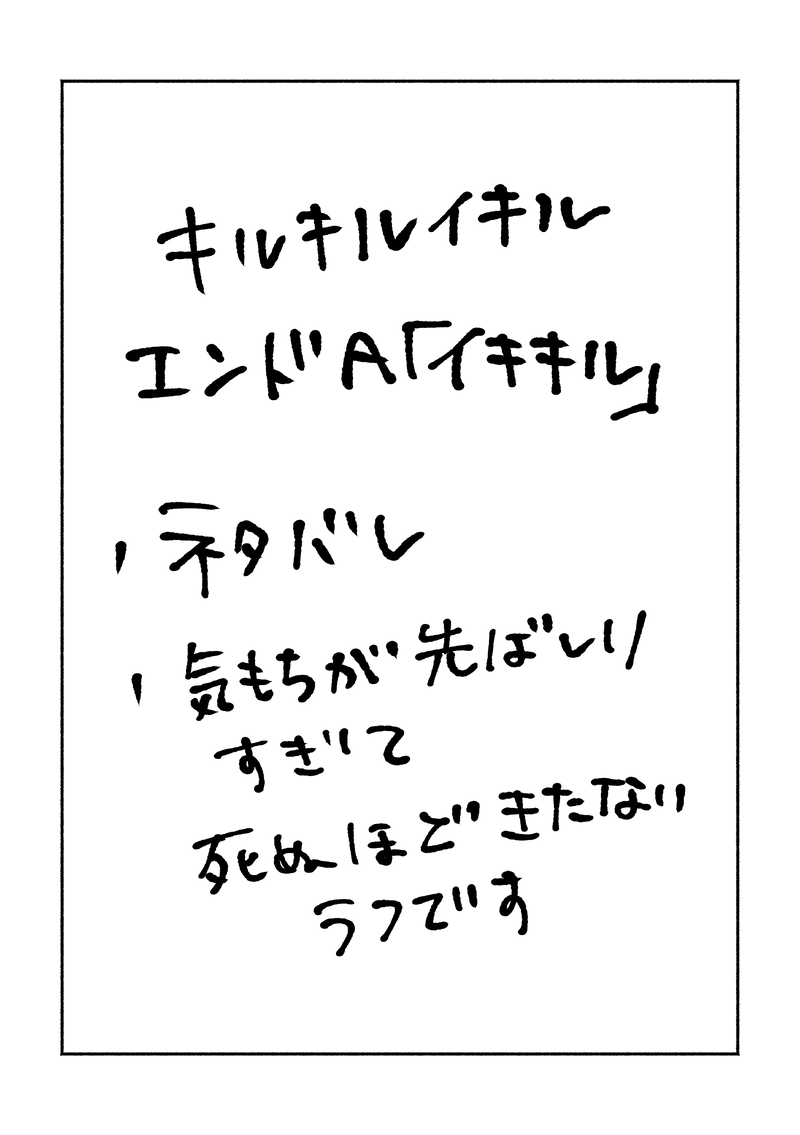 キルキルイキル
エンドA「イキキル」
・ネタバレ
・気もちが先ばしり
すぎて
死ぬほどきたない
ラフです